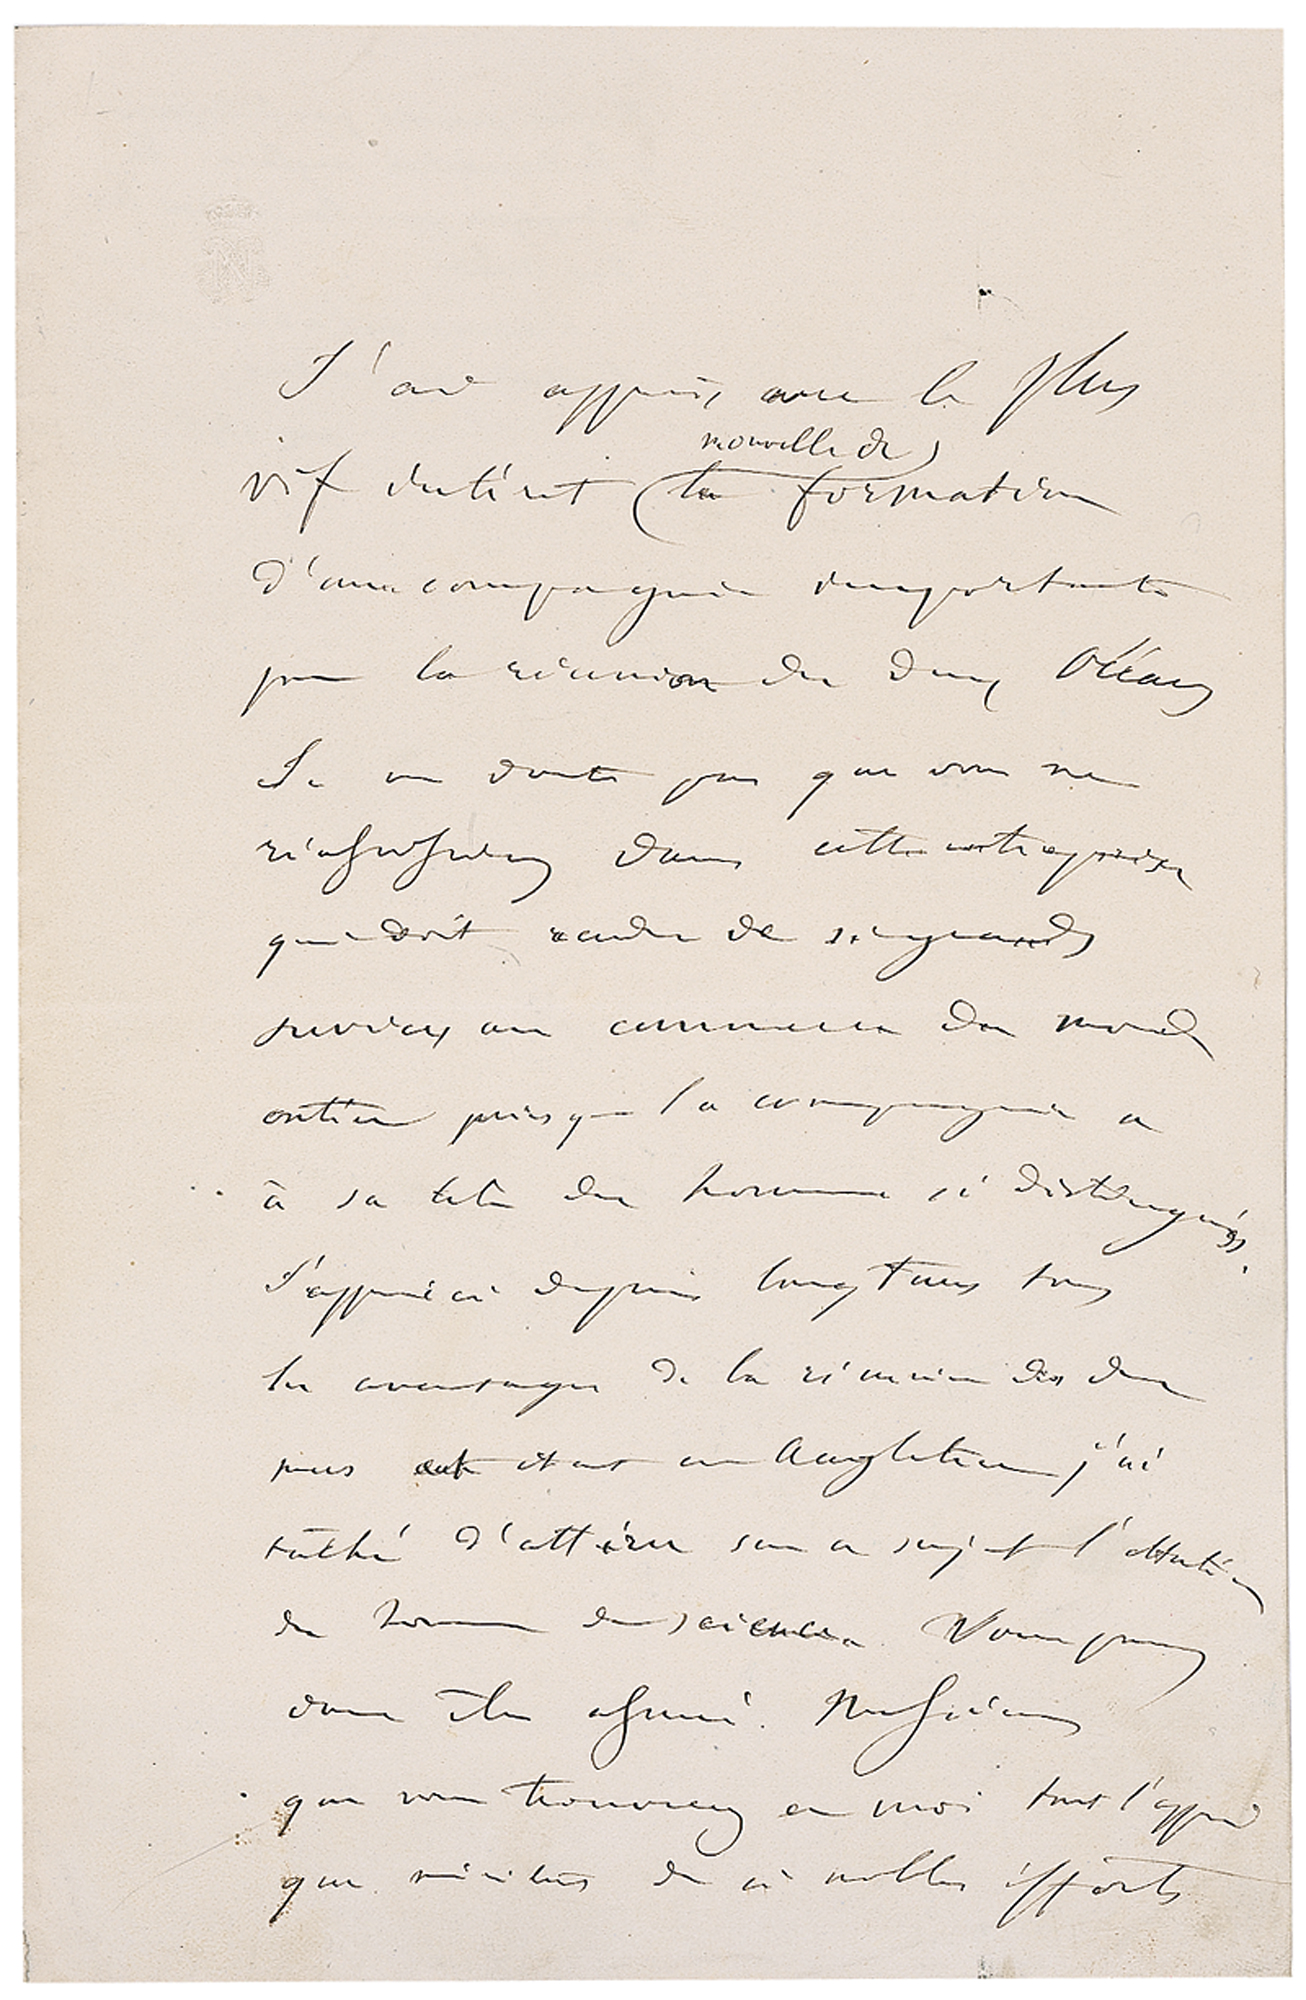 J'ai appris avec le plus
nouvelle de
vif intérêt (la formation
d'une compagnie importante
pour la réunion des deux Océans
Je ne doute pas que vous ne
réussissiez dans cette entreprise
qui doit rendre de si grands
services au commerce du monde
entier puisque la compagnie a
à sa tête des hommes si distingués.
J'apprécie depuis longtems tous
les avantages de la réunion des deux
mers et étant en Angleterre j'ai
tâché d'attirer sur ce sujet l'attention
des hommes de science. Vous pouvez
donc être assuré. Messieurs
que vous trouverez en moi tout l'appui
que méritent de si nobles efforts